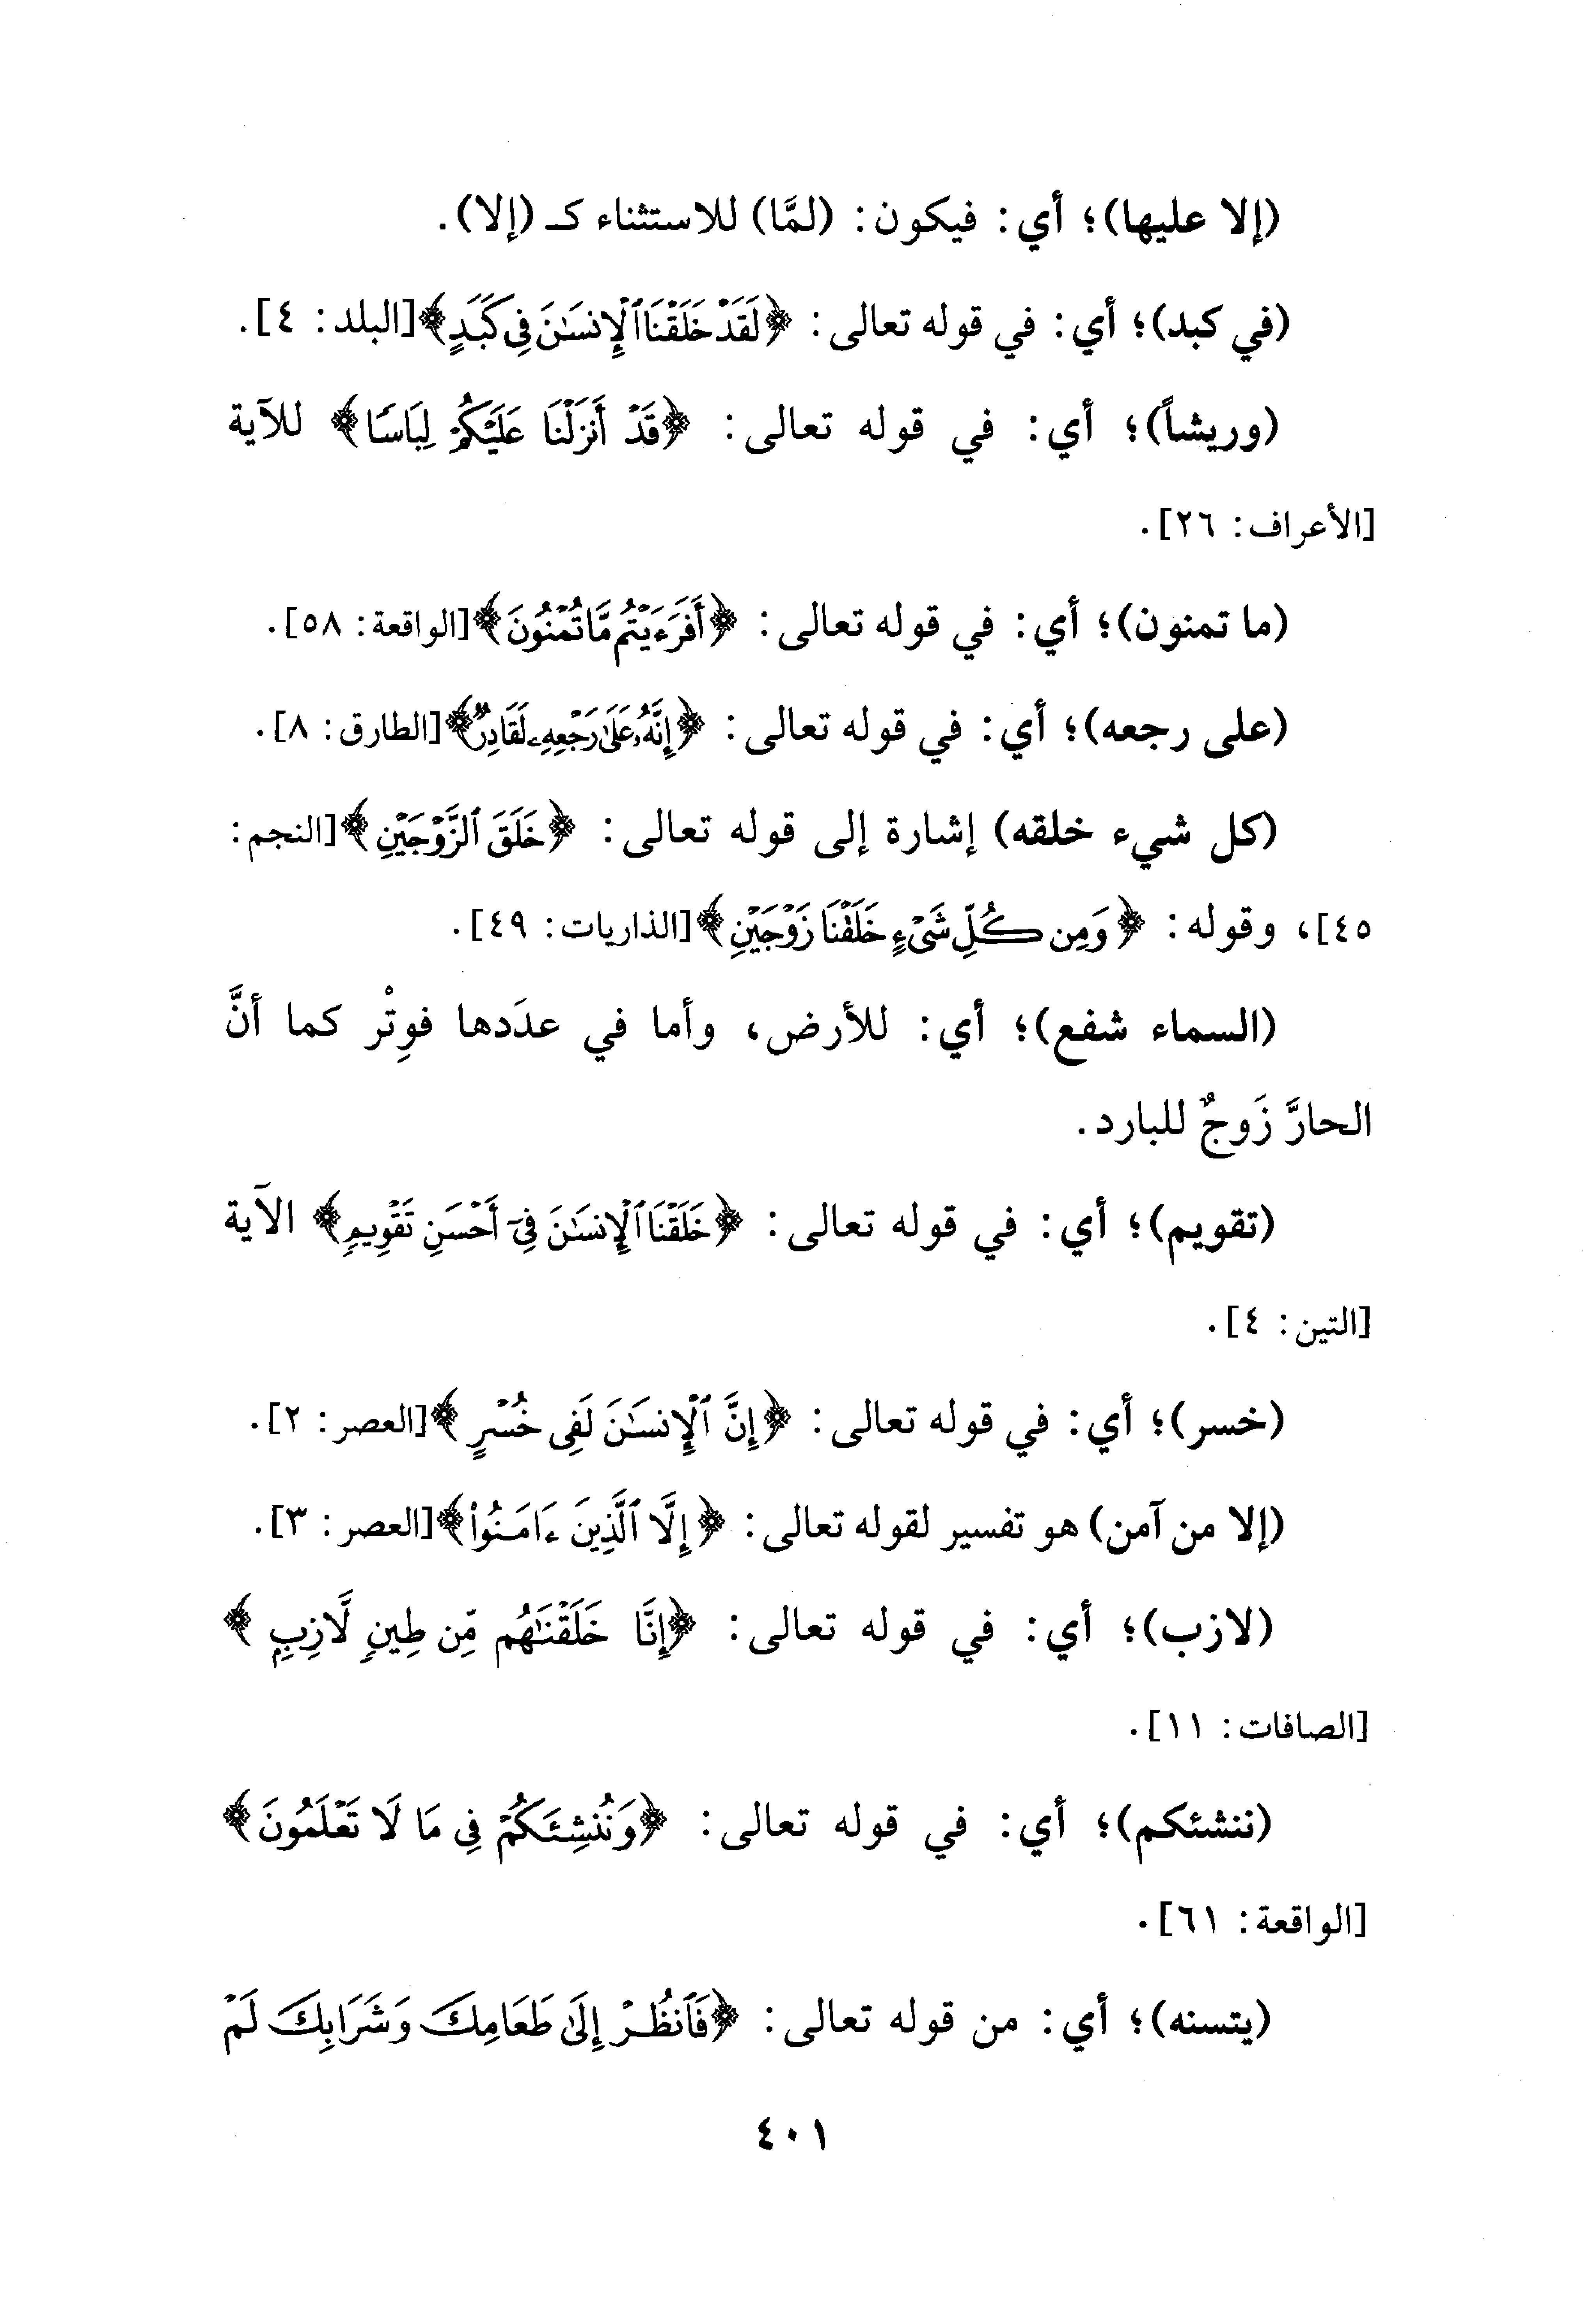 (إلا عليها)؛ أي: فيكون: (لمَّا) للاستثناء كـ (إلا).
(في كبد)؛ أي: في قوله تعالى: ﴿لَقَدۡ خَلَقۡنَا ٱلۡإِنسَٰنَ فِي كَبَدٍ﴾ [البلد: ٤].
(وريشاً)؛ أي: في قوله تعالى: ﴿قَدۡ أَنزَلۡنَا عَلَيۡكُمۡ لِبَاسًا﴾ للآية
[الأعراف: ٢٦].
(ما تمنون)؛ أي: في قوله تعالى: ﴿أَفَرَءَيۡتُم مَّا تُمۡنُونَ﴾ [الواقعة: ٥٨].
(على رجعه)؛ أي: في قوله تعالى: ﴿إِنَّهُۥ عَلَىٰ رَجۡعِهِۦ لَقَادِرٌ﴾ [الطارق: ٨].
(كل شيء خلقه) إشارة إلى قوله تعالى: ﴿خَلَقَ ٱلزَّوۡجَيۡنِ﴾ [النجم:
٤٥]، وقوله: ﴿وَمِن كُلِّ شَيۡءٍ خَلَقۡنَا زَوۡجَيۡنِ﴾ [الذاريات: ٤٩].
(السماء شفع)؛ أي: للأرض، وأما في عدَدها فوِتْر كما أنَّ
الحارَّ زَوجٌ للبارد.
(تقويم)؛ أي: في قوله تعالى: ﴿خَلَقۡنَا ٱلۡإِنسَٰنَ فِيٓ أَحۡسَنِ تَقۡوِيمٍ﴾ الآية
[التين: ٤].
(خسر)؛ أي: في قوله تعالى: ﴿إِنَّ ٱلۡإِنسَٰنَ لَفِي خُسۡرٍ﴾ [العصر: ٢].
(إلا من آمن) هو تفسير لقوله تعالى: ﴿إِلَّا ٱلَّذِينَ ءَامَنُواْ﴾ [العصر: ٣].
(لازب)؛ أي: في قوله تعالى: ﴿إِنَّا خَلَقۡنَٰهُم مِّن طِينٖ لَّازِبِۭ﴾
[الصافات: ١١].
(ننشئكم)؛ أي: في قوله تعالى: ﴿وَنُنشِئَكُمۡ فِي مَا لَا تَعۡلَمُونَ﴾
[الواقعة: ٦١].
(يتسنه)؛ أي: من قوله تعالى: ﴿فَٱنظُرۡ إِلَىٰ طَعَامِكَ وَشَرَابِكَ لَمۡ
٤٠١